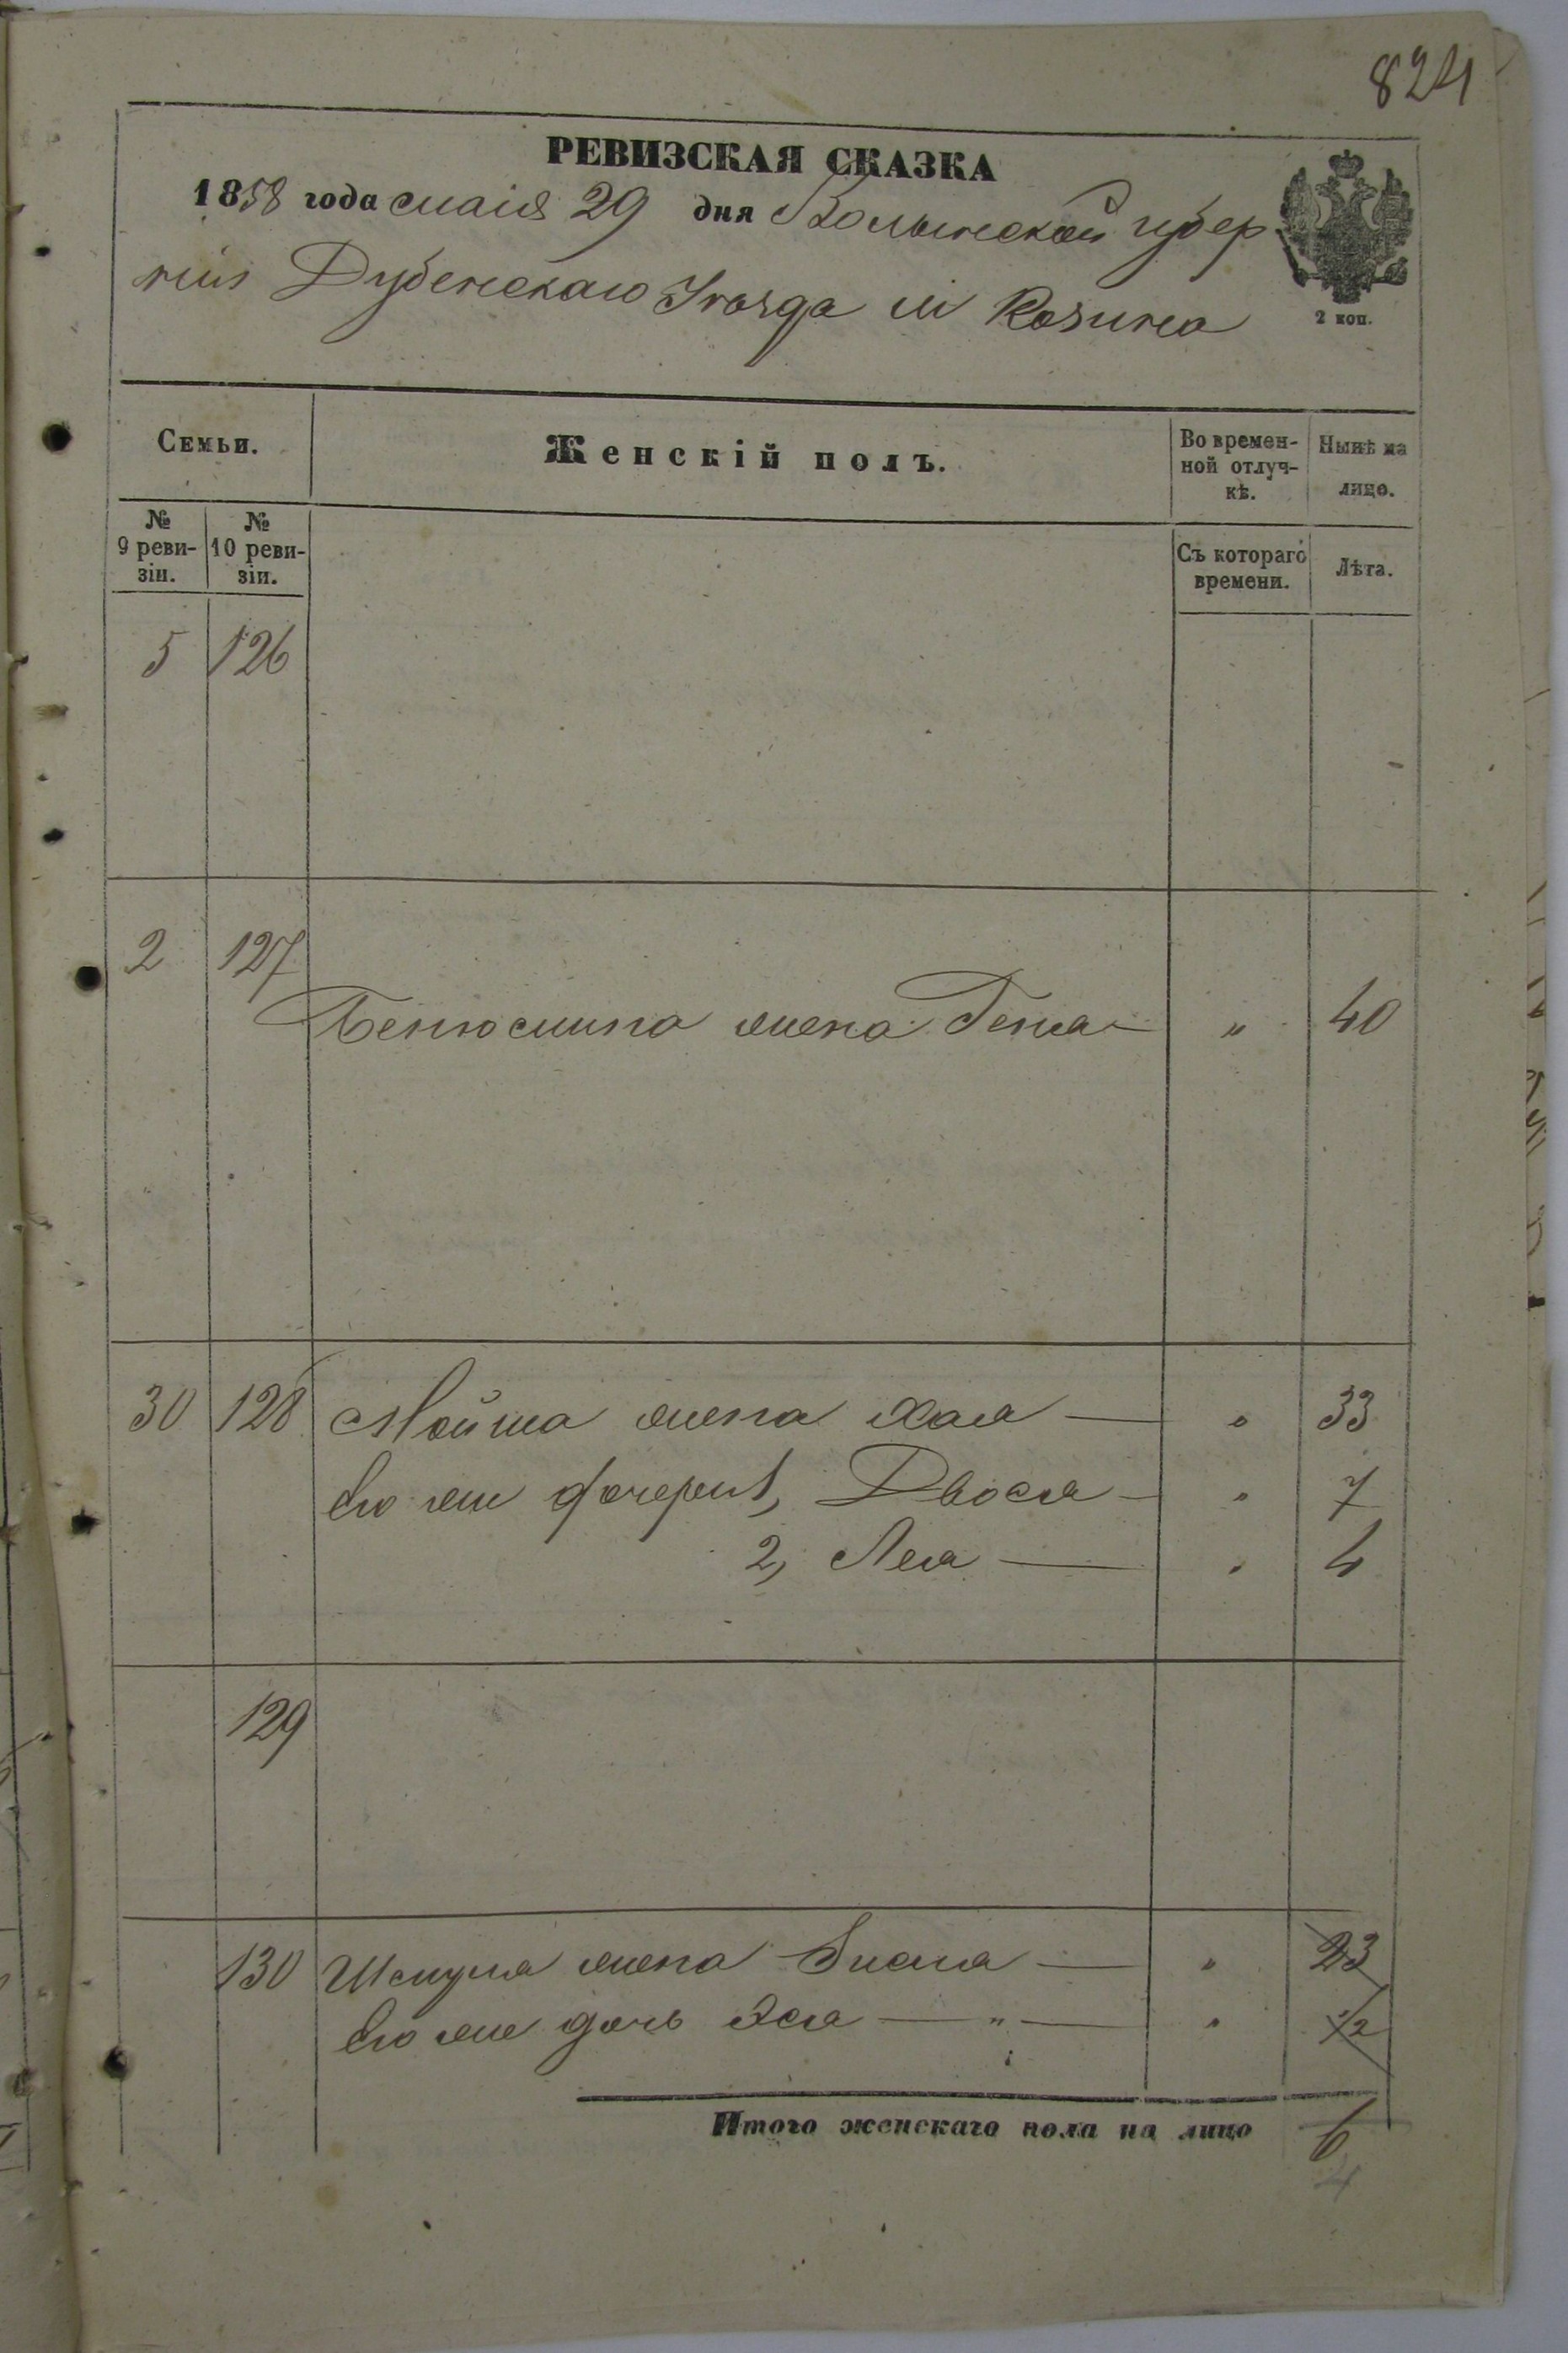 824
РЕВИЗСКАЯ СКАЗКА
1858 года маія 29 дня Волынской губер
ніи Дубенскаго Уѣзда м Козина
2 коп.
Семьи.
Женскій полъ.
Во времен-
ной отлуч-
кѣ.
Нынѣ на
лицо.
№
9 реви-
зіи.
№
10 реви-
зіи.
Съ котораго
времени.
Лѣта.
5 126
2 127
Бенюмина жена Геня — " 40
30 128 Мойша жена Хая — " 33
Его же дочери 1, Двося — " 7
2, Лея — " 4
129
130 Шмуля жена — " 23
Его же дочь Хая — " — " 1/2
Итого женскаго пола на лицо 6
4